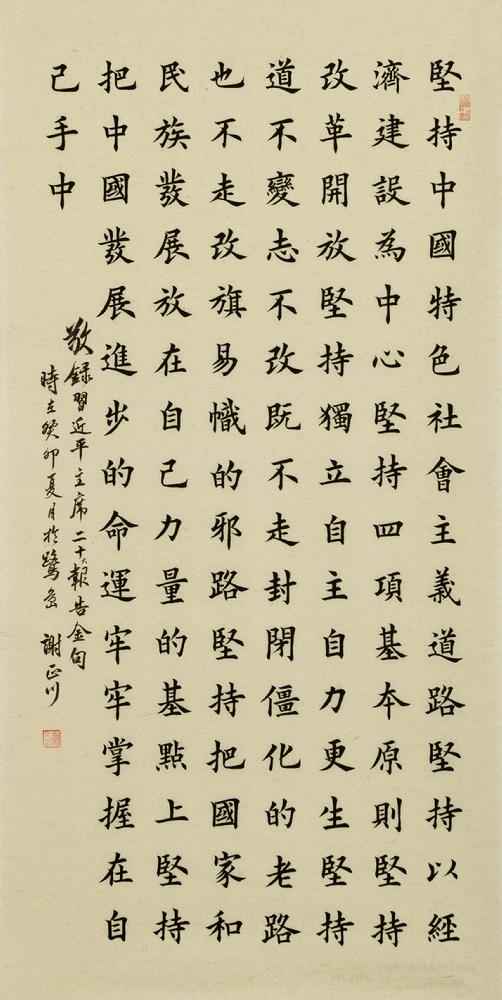 堅持中國特色社會主義道路堅持以經
濟建設為中心堅持四項基本原則堅持
改革開放堅持獨立自主自力更生堅持
道不變志不改既不走封閉僵化的老路
也不走改旗易幟的邪路堅持把國家和
民族發展放在自己力量的基點上堅持
把中國發展進步的命運牢牢掌握在自
己手中
敬錄習近平主席二十大報告金句
時在癸卯夏月於鷺島 謝正川